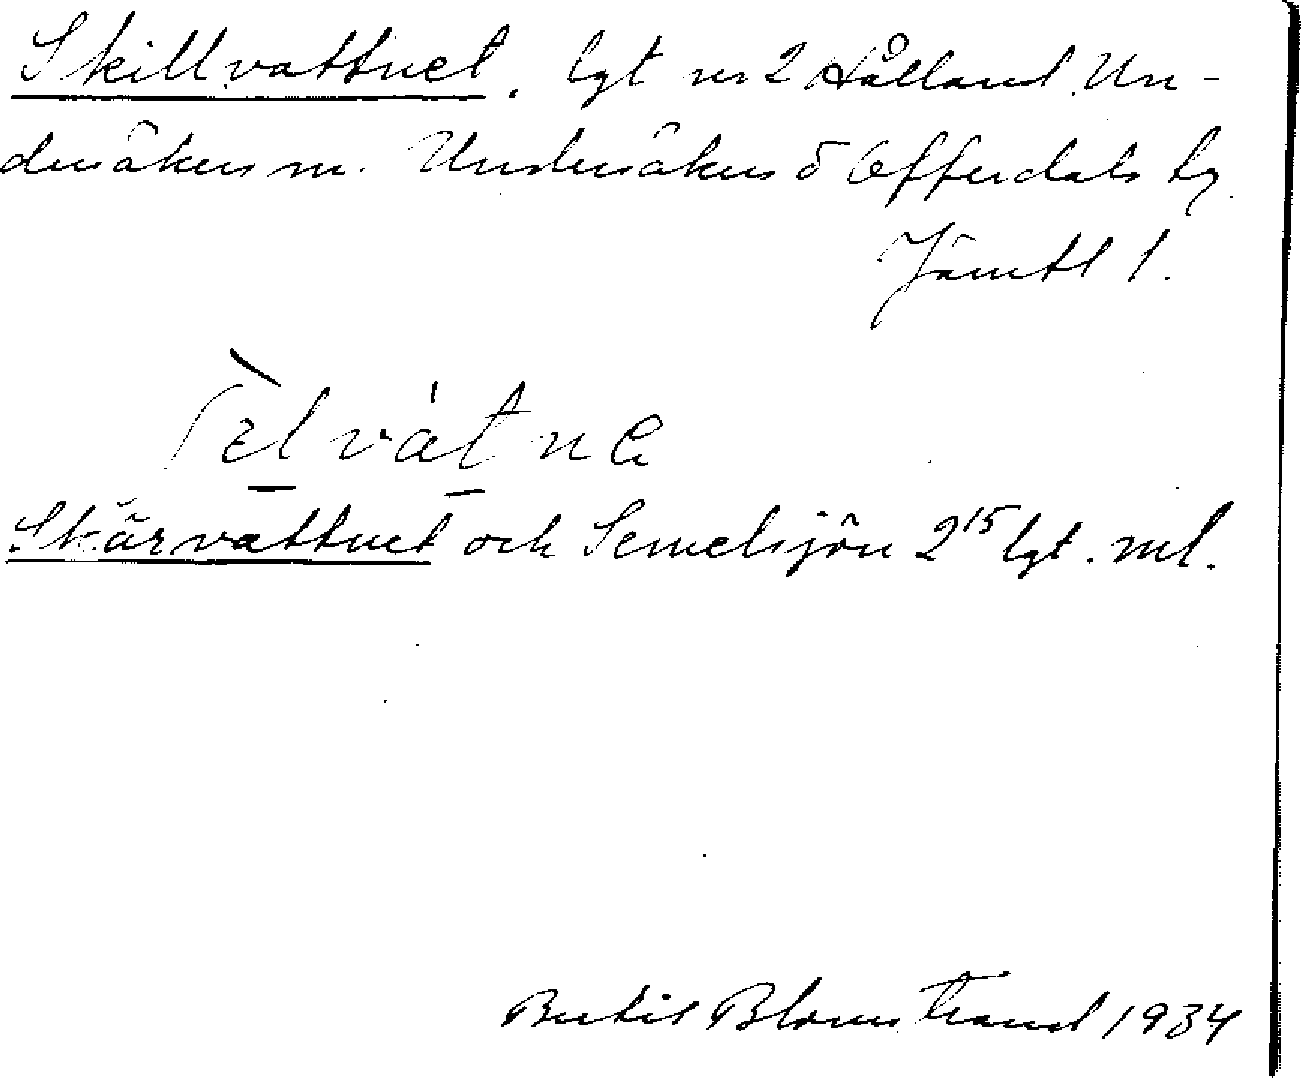 Skillvattnet. lgt nr 2 Hålland Un-
dersåkers sn. Undersåkers o Offerdals tg
Jämtl l.
ʃelvàtnɐ
Skärvattnet och Semelsjön 2¹⁵ lgt. ml.
Bertil Blomstrand 1934